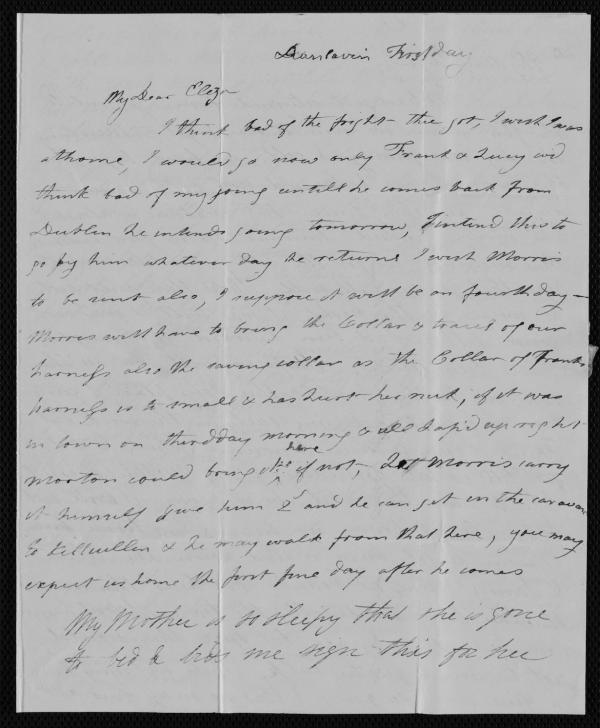 Dunlavin First day
My Dear Eliza
I think bad of the fright thee got, I wish I was
at home, I would go now only Frank & Lucy wd
think bad of my going untill he comes back from
Dublin he intends going tomorrow, I intend this to
go by him whatever day he returns I wish Morris
to be sent also, I suppose it will be on fourth day —
Morris will have to bring the Collar & traces of our
harness also the saving collar as the Collar of Franks
harness is to small & has hurt her neck, if it was
in town on third day morning & all lap'd up right
Morton could bring it here if not, Let Morris carry
it himself give him 2s and he can get in the caravan
to Kilcullen & he may walk from that here, you may
expect us home the first fine day after he comes
My Mother is so sleepy that she is gone
to bed & bids me sign this for her